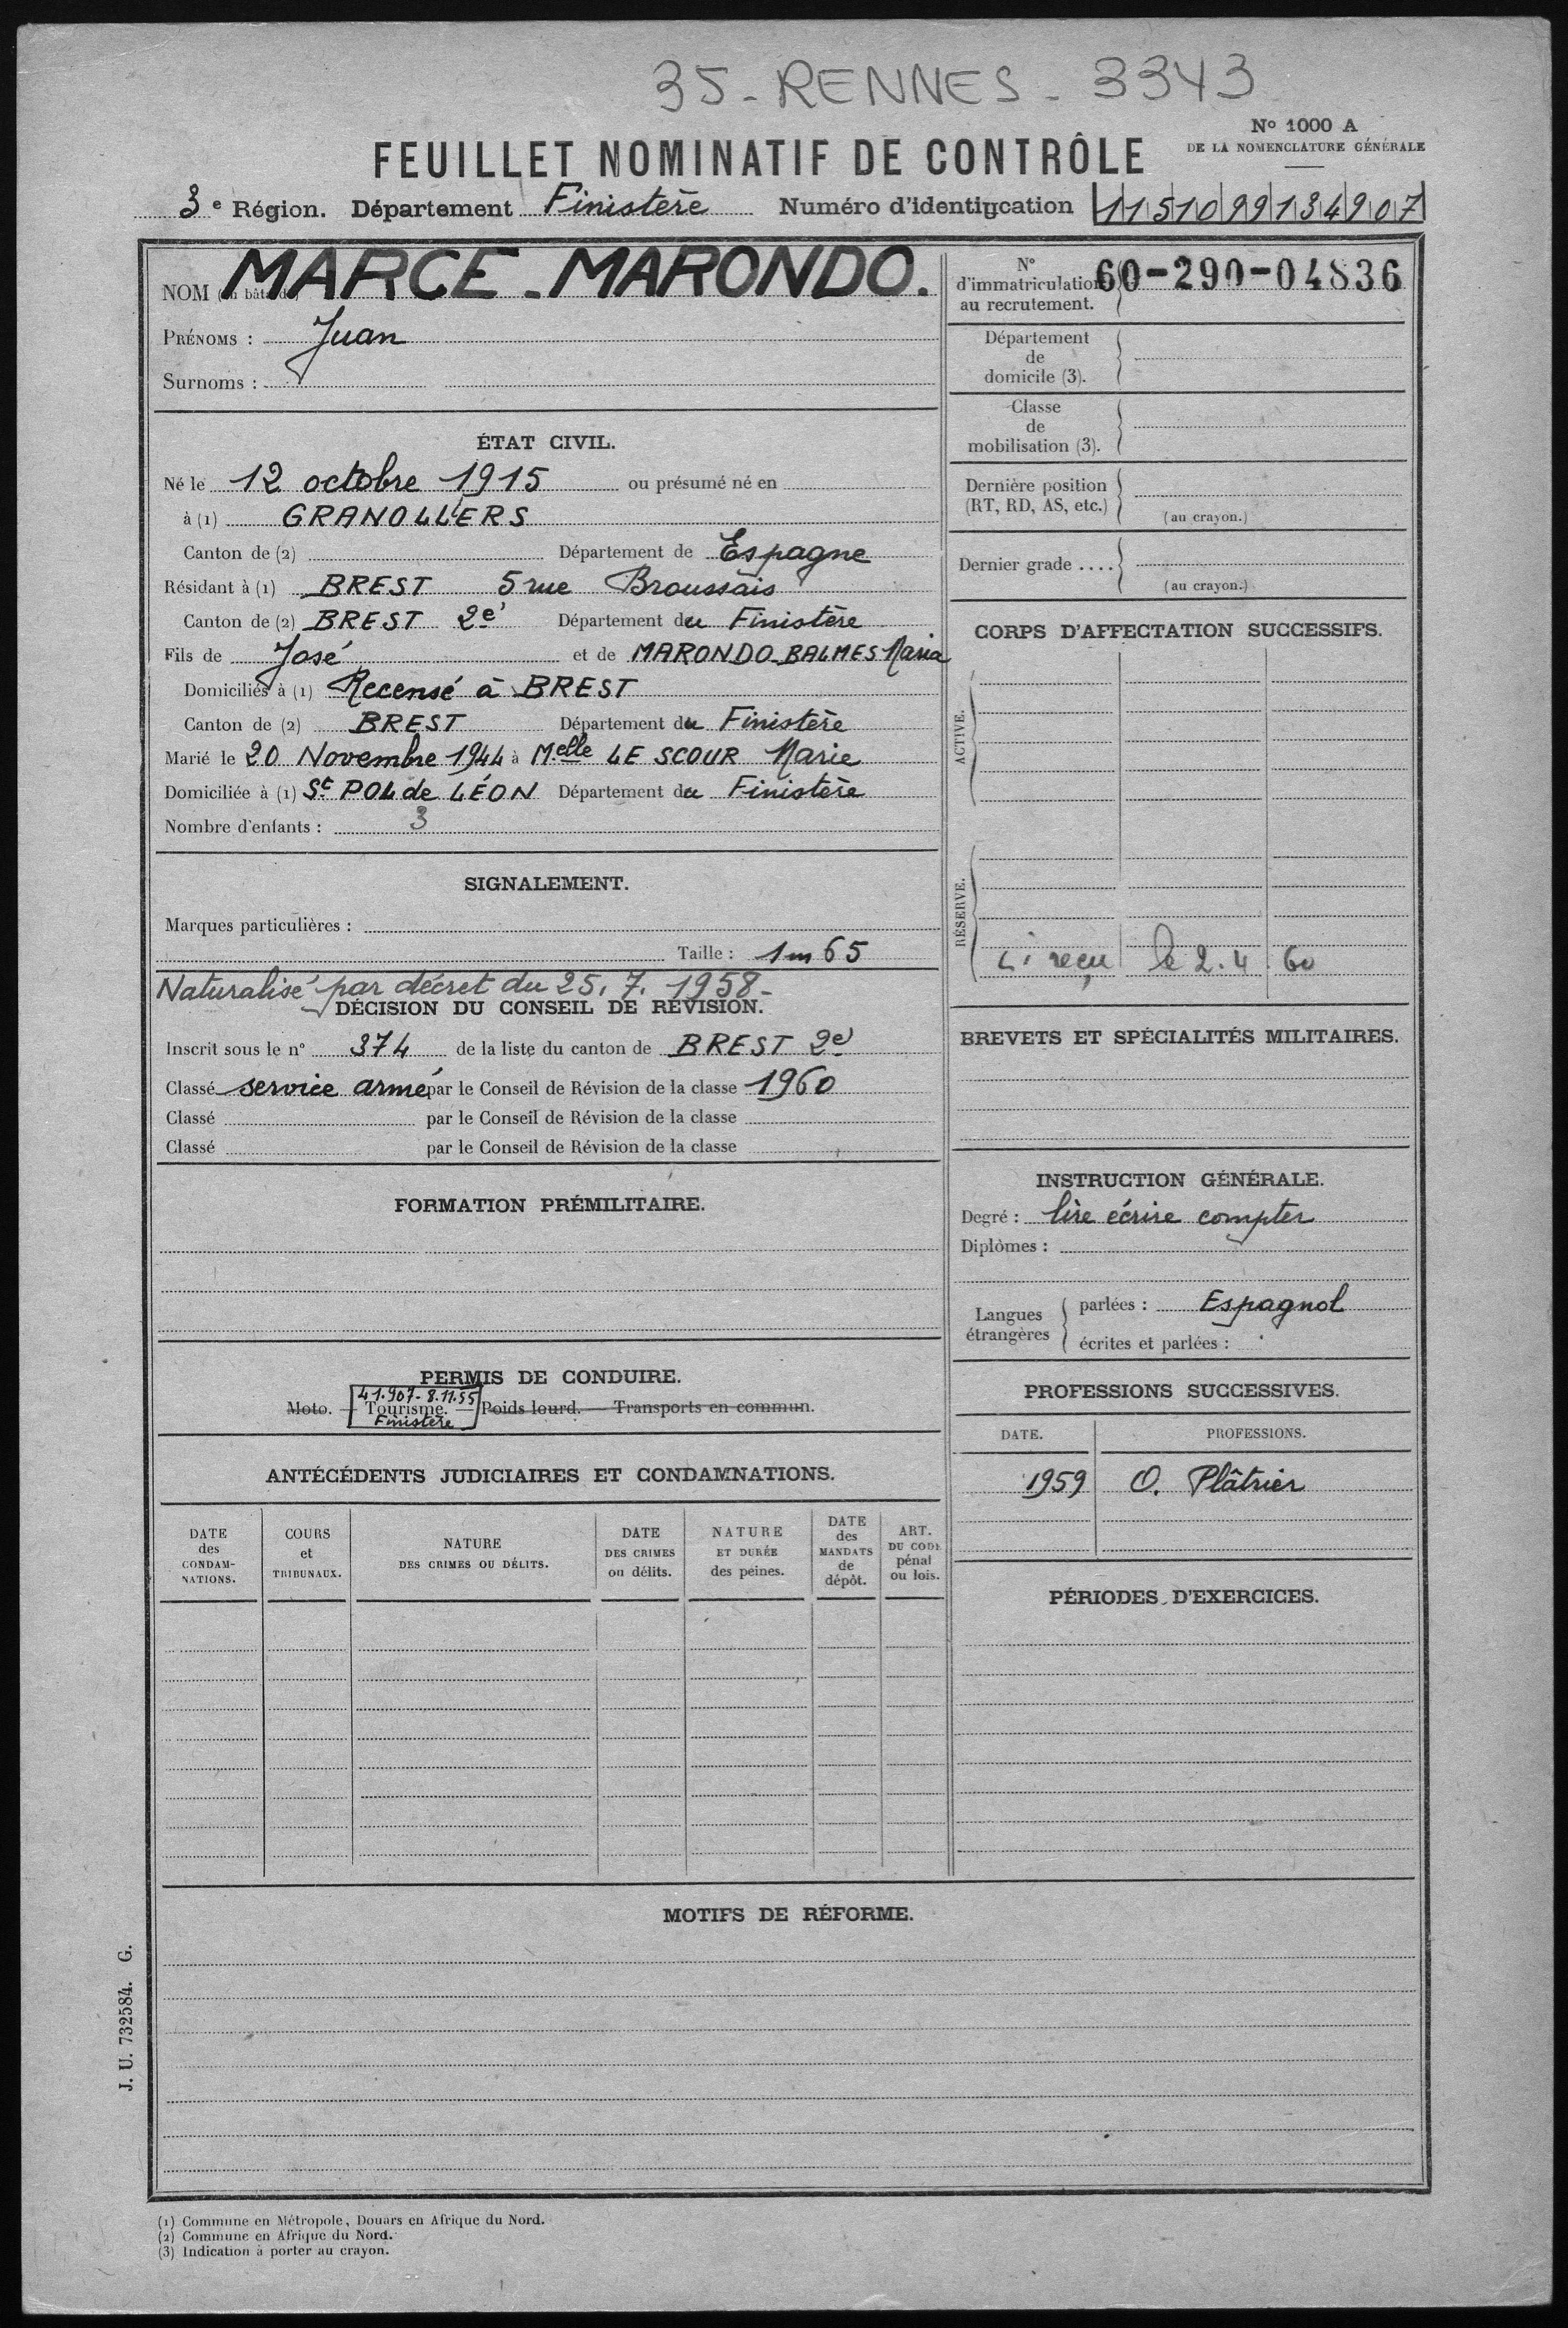 35 - RENNES - 3343
No 1000 A
DE LA NOMENCLATURE GÉNÉRALE
FEUILLET NOMINATIF DE CONTRÔLE
3e Région. Département Finistère Numéro d'identification 1151099134907
NOM MARCE - MARONDO.
PRÉNOMS : Juan
Surnoms :
ÉTAT CIVIL.
Né le 12 octobre 1915 ou présumé né en
à (1) GRANOLLERS
Canton de (2) Département de Espagne
Résidant à (1) BREST 5 rue Broussais
Canton de (2) BREST 2e Département du Finistère
Fils de José et de MARONDO-BALMES Maria
Domiciliés à (1) Recensé à BREST
Canton de (2) BREST Département du Finistère
Marié le 20 Novembre 1944 à Melle LE SCOUR Marie
Domiciliée à (1) St POL de LÉON Département du Finistère
Nombre d'enfants : 3
SIGNALEMENT.
Marques particulières :
Taille : 1m65
Naturalisé par décret du 25.7.1958-
DÉCISION DU CONSEIL DE RÉVISION.
Inscrit sous le n° 374 de la liste du canton de BREST 2e
Classé service armé par le Conseil de Révision de la classe 1960
Classé par le Conseil de Révision de la classe
Classé par le Conseil de Révision de la classe
FORMATION PRÉMILITAIRE.
PERMIS DE CONDUIRE.
41.907-8.11.55
Moto. — Tourisme. — Poids lourd. — Transports en commun.
Finistère
ANTÉCÉDENTS JUDICIAIRES ET CONDAMNATIONS.
DATE des CONDAMNATIONS.
COURS et TRIBUNAUX.
NATURE DES CRIMES OU DÉLITS.
DATE DES CRIMES ou délits.
NATURE ET DURÉE des peines.
DATE des MANDATS de dépôt.
ART. DU CODE pénal ou lois.
N° d'immatriculation au recrutement. 60-290-04836
Département de domicile (3).
Classe de mobilisation (3).
Dernière position (RT, RD, AS, etc.)
(au crayon.)
Dernier grade ....
(au crayon.)
CORPS D'AFFECTATION SUCCESSIFS.
ACTIVE.
RÉSERVE.
reçu le 2.4.60
BREVETS ET SPÉCIALITÉS MILITAIRES.
INSTRUCTION GÉNÉRALE.
Degré : lire écrire compter
Diplômes :
Langues étrangères
parlées : Espagnol
écrites et parlées :
PROFESSIONS SUCCESSIVES.
DATE. PROFESSIONS.
1959 O. Plâtrier
PÉRIODES D'EXERCICES.
MOTIFS DE RÉFORME.
J. U. 732584. G.
(1) Commune en Métropole, Douars en Afrique du Nord.
(2) Commune en Afrique du Nord.
(3) Indication à porter au crayon.